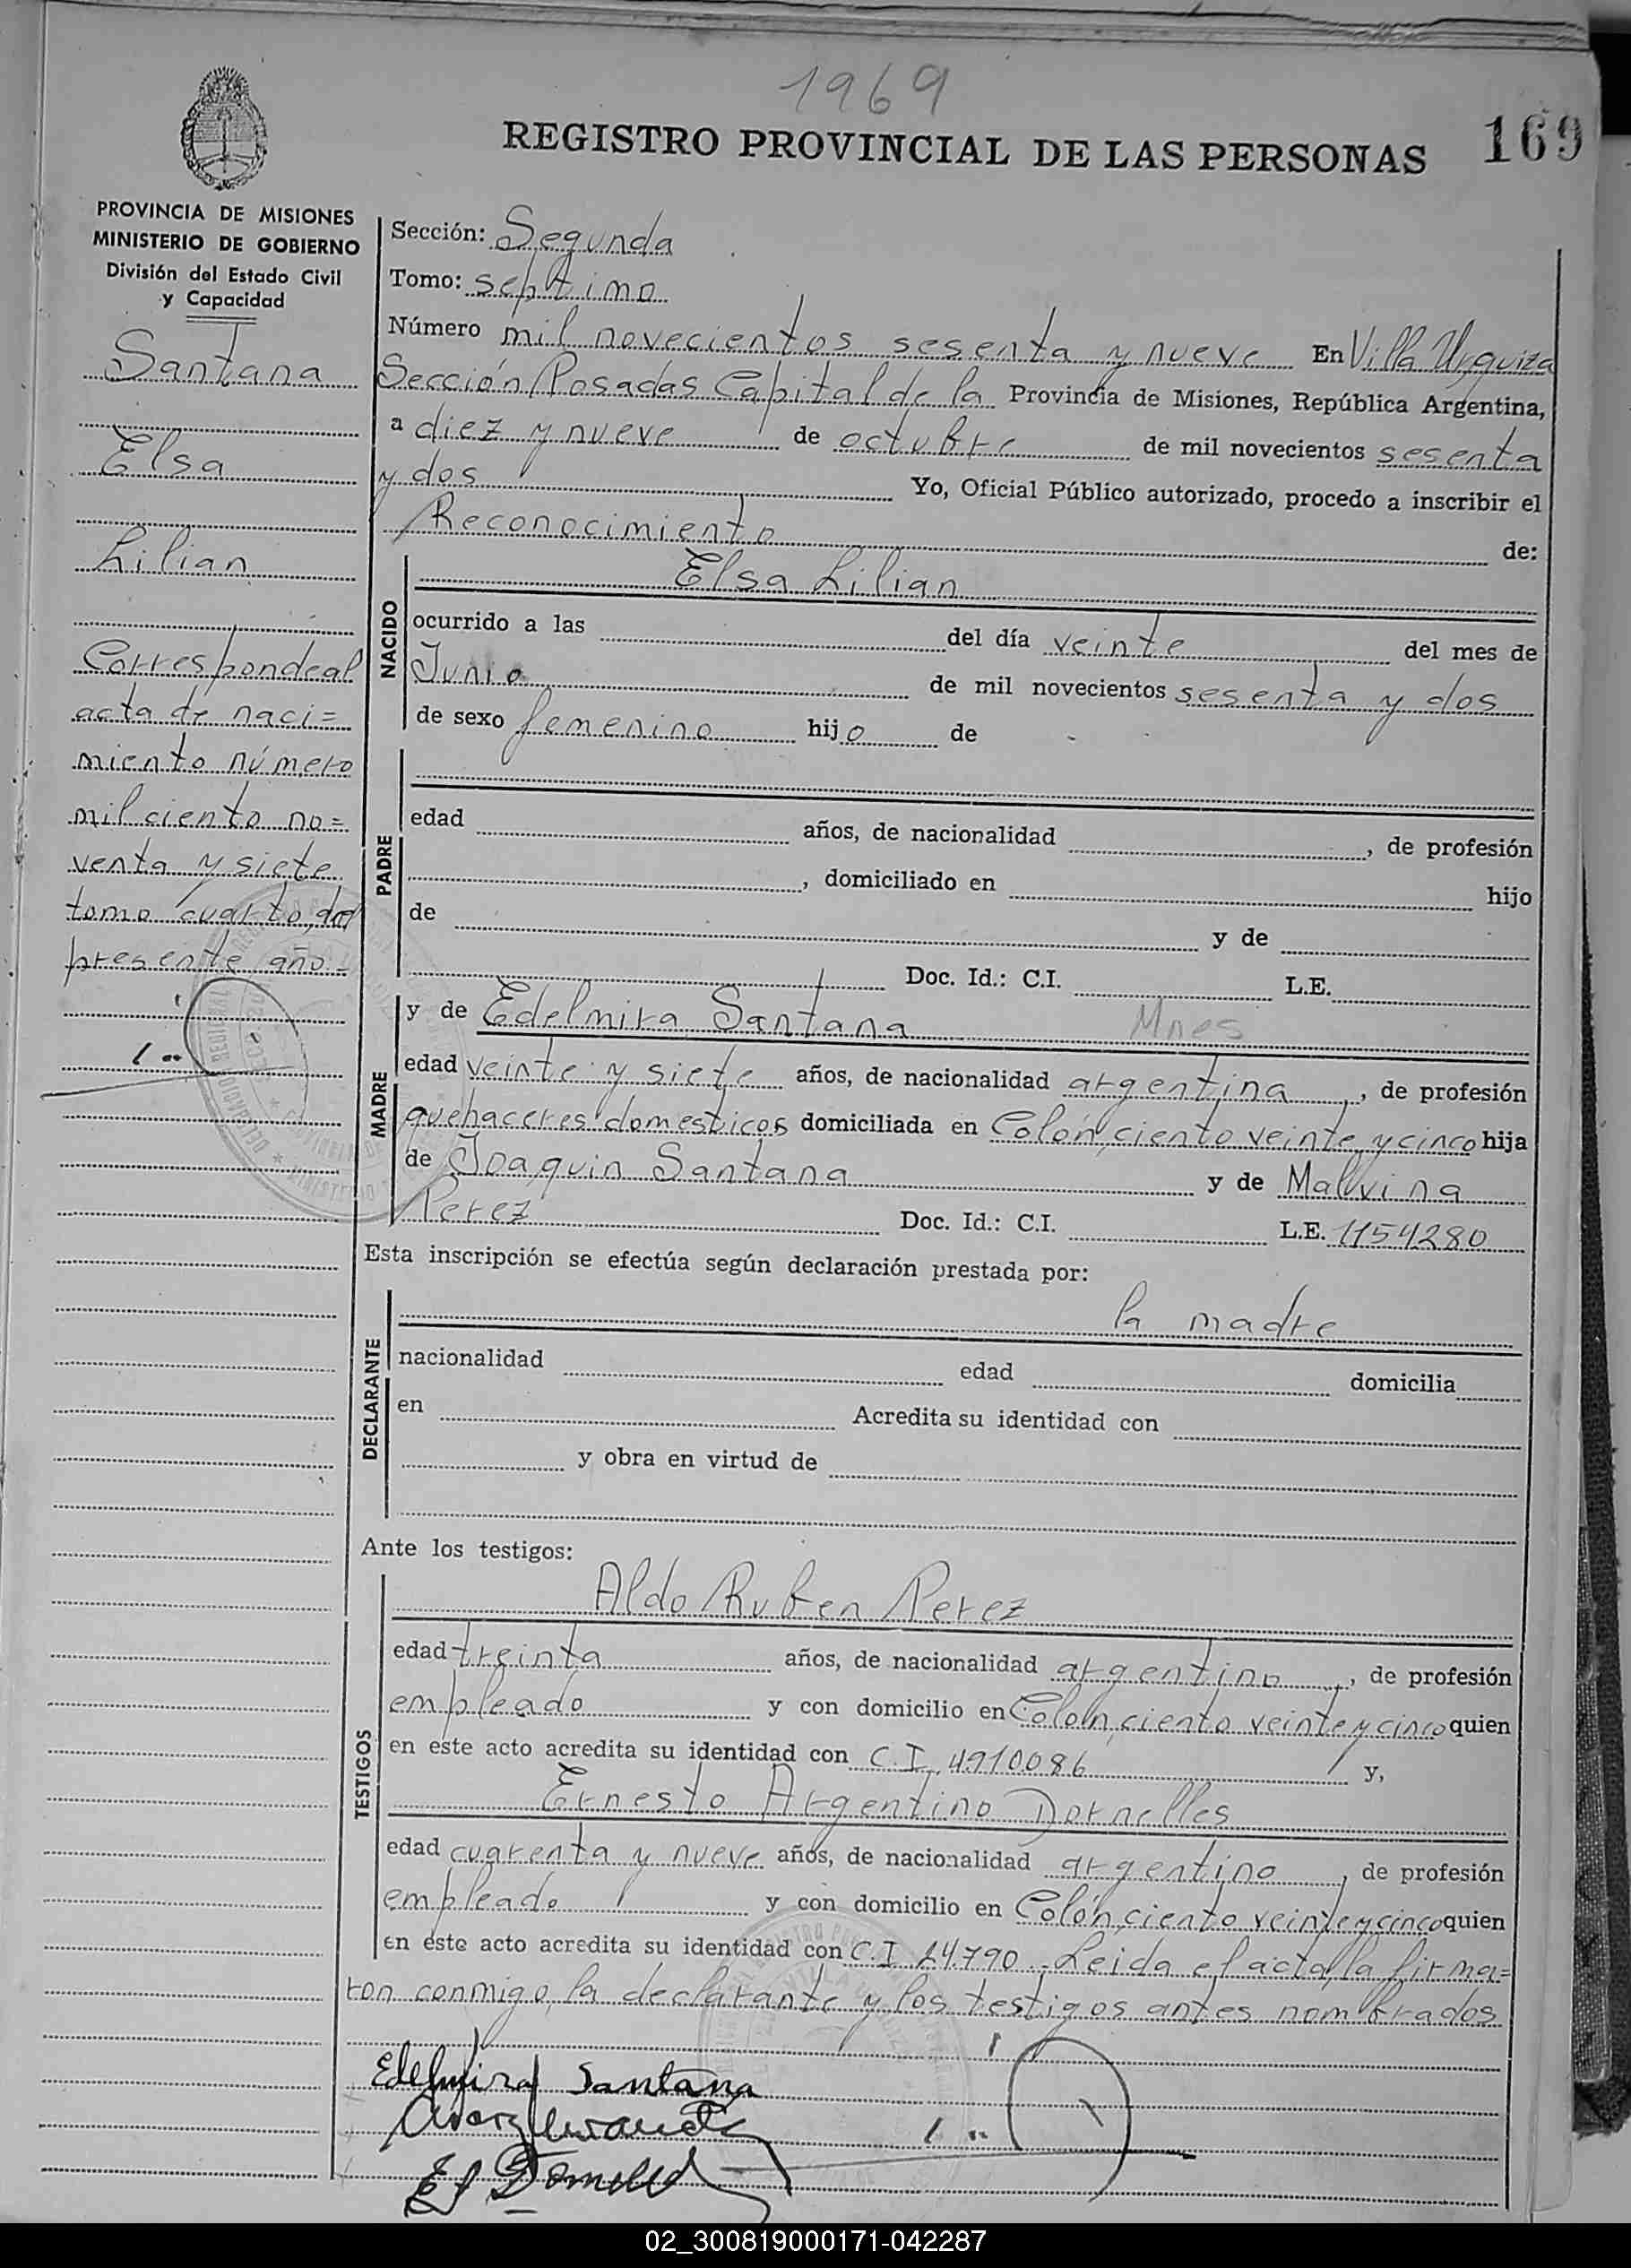 1969
REGISTRO PROVINCIAL DE LAS PERSONAS 169
PROVINCIA DE MISIONES
MINISTERIO DE GOBIERNO
División del Estado Civil
y Capacidad
Santana
Elsa
Lilian
Corresponde al
acta de naci=
miento número
mil ciento no=
venta y siete
tomo cuarto, del
presente año=
Sección: Segunda
Tomo: septimo
Número mil novecientos sesenta y nueve En Villa Urquiza
Sección Posadas Capital de la Provincia de Misiones, República Argentina,
a diez y nueve de octubre de mil novecientos sesenta
y dos Yo, Oficial Público autorizado, procedo a inscribir el
Reconocimiento de:
NACIDO
Elsa Lilian
ocurrido a las del día veinte del mes de
Junio de mil novecientos sesenta y dos
de sexo femenino hijo de
PADRE
edad años, de nacionalidad , de profesión
, domiciliado en hijo
de y de
Doc. Id.: C.I. L.E.
MADRE
y de Edelmira Santana Mnes
edad veinte y siete años, de nacionalidad argentina, de profesión
quehaceres domesticos domiciliada en Colon, ciento veinte y cinco hija
de Joaquin Santana y de Malvina
Perez Doc. Id.: C.I. L.E. 1154280
Esta inscripción se efectúa según declaración prestada por:
DECLARANTE
la madre
nacionalidad edad domicilia
en Acredita su identidad con
y obra en virtud de
Ante los testigos:
TESTIGOS
Aldo Ruben Perez
edad treinta años, de nacionalidad argentino, de profesión
empleado y con domicilio en Colon, ciento veinte y cinco quien
en este acto acredita su identidad con C.I. 4910086 y,
Ernesto Argentino Dornelles
edad cuarenta y nueve años, de nacionalidad argentino, de profesión
empleado y con domicilio en Colón, ciento veinte y cinco quien
en este acto acredita su identidad con C.I 24.790. Leida el acta, la firma=
ron conmigo, la declarante y los testigos antes nombrados
Edelmira Santana
02_300819000171-042287